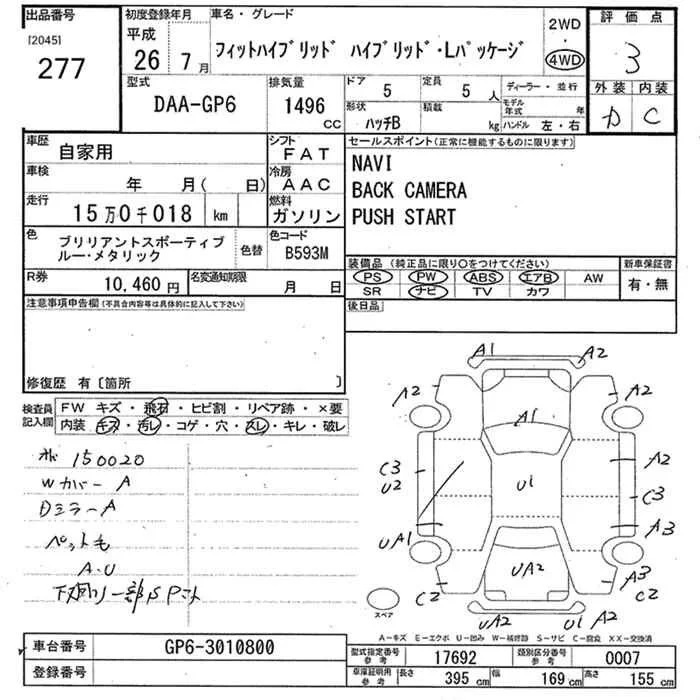 出品番号
[2045]
277
初度登録年月
平成
26年
7月
車名・グレード
フィットハイブリッド ハイブリッド・Lパッケージ
2WD
・
4WD
評価点
3
外装 内装
D C
型式
DAA-GP6
排気量
1496
CC
ドア
5
定員
5人
ディーラー・並行
形状
ハッチB
積載
kg
モデル年式 年
ハンドル 左・右
車歴
自家用
シフト
FAT
車検
年 月( 日)
冷房
AAC
走行
15万0千018 km
燃料
ガソリン
色
ブリリアントスポーティブ
ルー・メタリック
色替
色コード
B593M
R券
10,460円
名変通知期限
月 日
セールスポイント(正常に機能するものに限ります)
NAVI
BACK CAMERA
PUSH START
装備品 (純正品に限り○をつけてください)
PS PW ABS エアB AW
SR ナビ TV カワ
新車保証書
有・無
後日品
注意事項申告欄(不具合内容等は具体的に記入して下さい)
修復歴 有〔箇所 〕
検査員
記入欄
FW キズ・飛石・ヒビ割・リペア跡・×要
内装 キズ・汚レ・コゲ・穴・スレ・キレ・破レ
150020
Wカバー A
Dミラー A
ペット毛
A・U
下回り一部S Pコト
A1
A2
A2
A2
A1
C3
U2
A2
U1
C3
UA1
A3
UA2
A3
C2
C2
UA2
U1 A2
スペア
A-キズ E-エクボ U-凹み W-補修跡 S-サビ C-腐食 XX-交換済
車台番号
GP6-3010800
登録番号
型式指定番号
参考
17692
類別区分番号
参考
0007
車庫証明用
参考
長さ
395 cm
幅
169 cm
高さ
155 cm